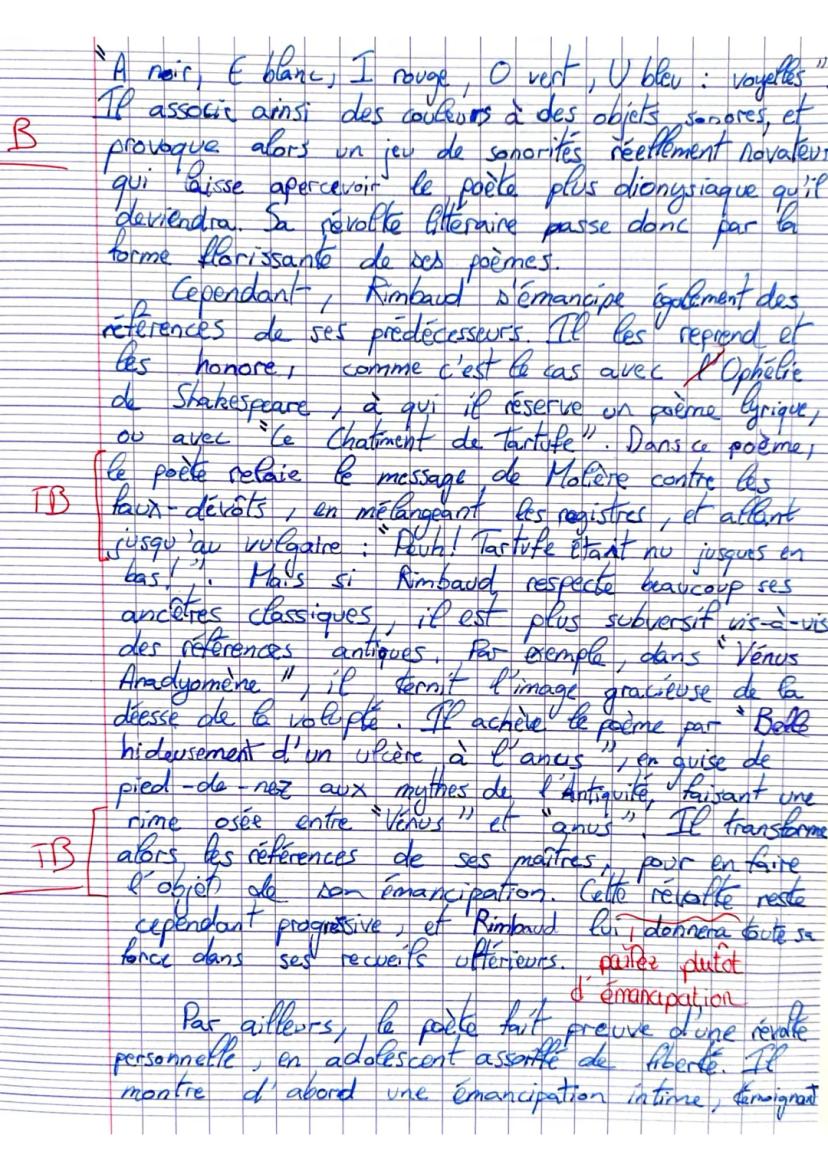 "A noir, E blanc, I rouge, O vert, U bleu : voyelles".
Il associe ainsi des couleurs à des objets sonores, et
B
provoque alors un jeu de sonorités réellement novateur
qui laisse apercevoir le poète plus dionysiaque qu'il
deviendra. Sa révolte littéraire passe donc par la
forme florissante de ses poèmes.
Cependant, Rimbaud s'émancipe également des
références de ses prédécesseurs. Il les reprend et
les honore, comme c'est le cas avec l'Ophélie
de Shakespeare, à qui il réserve un poème lyrique,
ou avec "Le Chatiment de Tartufe". Dans ce poème,
le poète relaie le message de Molère contre les
TB
faux-dévôts, en mélangeant les registres, et allant
jusqu'au vulgaire : "Peuh! Tartufe étant nu jusques en
bas!". Mais si Rimbaud respecte beaucoup ses
ancêtres classiques, il est plus subversif vis-à-vis
des références antiques. Par exemple, dans "Vénus
Anadyomène", il ternit l'image gracieuse de la
déesse de la volupté. Il achève le poème par "Belle
hideusement d'un ulcère à l'anus", en guise de
pied-de-nez aux mythes de l'Antiquité, faisant une
rime osée entre "Vénus" et "anus". Il transforme
TB
alors les références de ses maîtres, pour en faire
l'objet de son émancipation. Cette révolte reste
cependant progressive, et Rimbaud lui donnera toute sa
force dans ses recueils ultérieurs. parlez plutôt
d'émancipation
Par ailleurs, le poète fait preuve d'une révolte
personnelle, en adolescent assoiffé de liberté. Il
montre d'abord une émancipation intime, témoignant